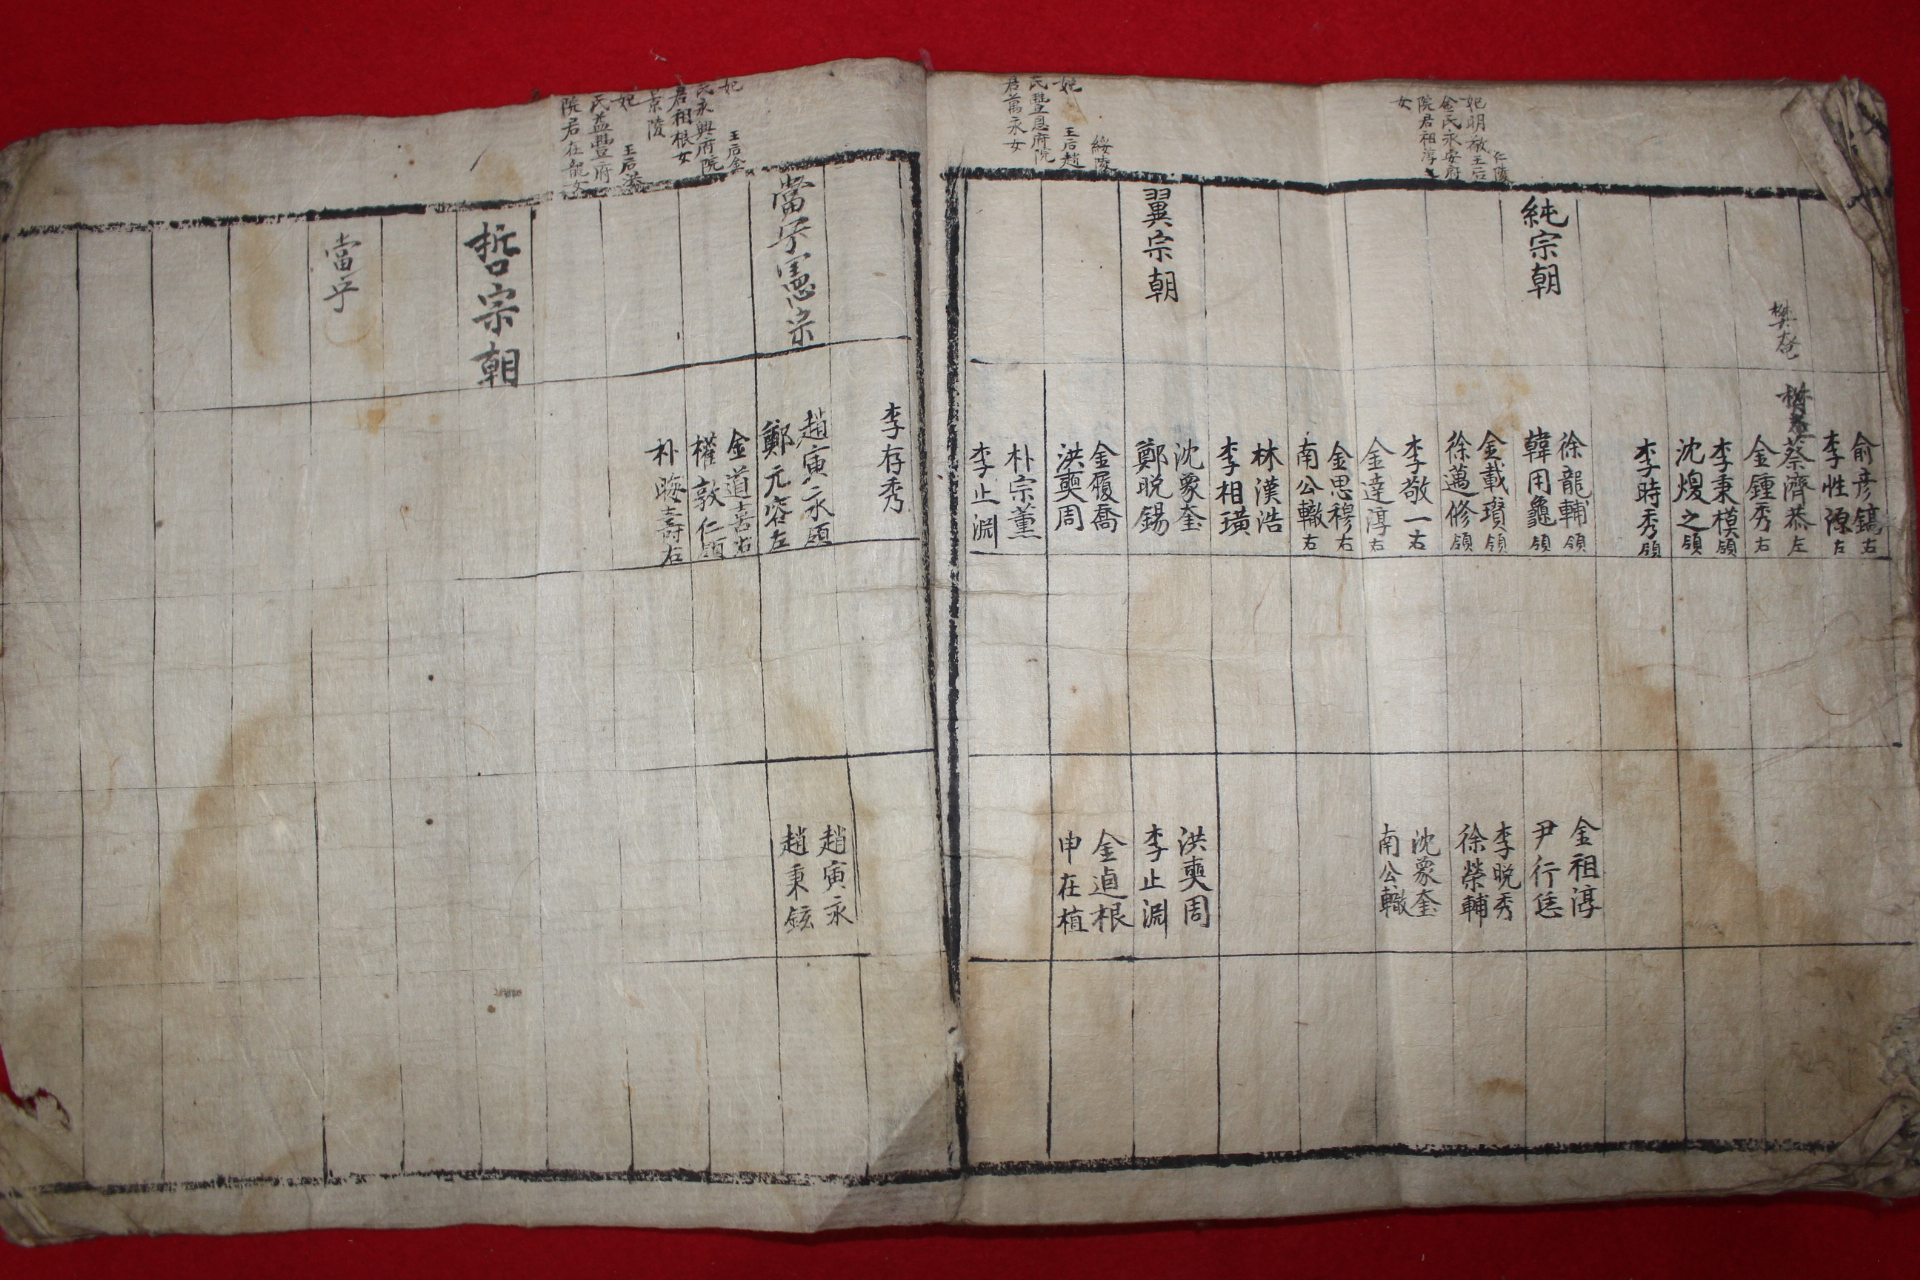 仁陵
妃明敬王后
金氏永安府
院君祖淳
女
綏陵
妃 王后趙
氏豊恩府院
君萬永女
樊菴
純宗朝
翼宗朝
俞彦鎬右
李性源左
蔡濟恭左
金鍾秀右
李秉模領
沈煥之領
李時秀領
徐龍輔領
韓用龜領
金載瓚領
徐邁修領
李敬一右
金達淳右
金思穆右
南公轍右
林漢浩
李相璜
沈象奎
鄭晩錫
金履喬
洪奭周
朴宗薰
李止淵
金祖淳
尹行恁
李晩秀
徐榮輔
沈象奎
南公轍
洪奭周
李止淵
金逌根
申在植
妃 王后金
氏永興府院
君祖根女
景陵
妃 王后
氏益豊府
院君在龍女
憲宗
哲宗朝
當宁
李存秀
趙寅永領
鄭元容左
金道喜右
權敦仁領
朴晦壽右
趙寅永
趙秉鉉